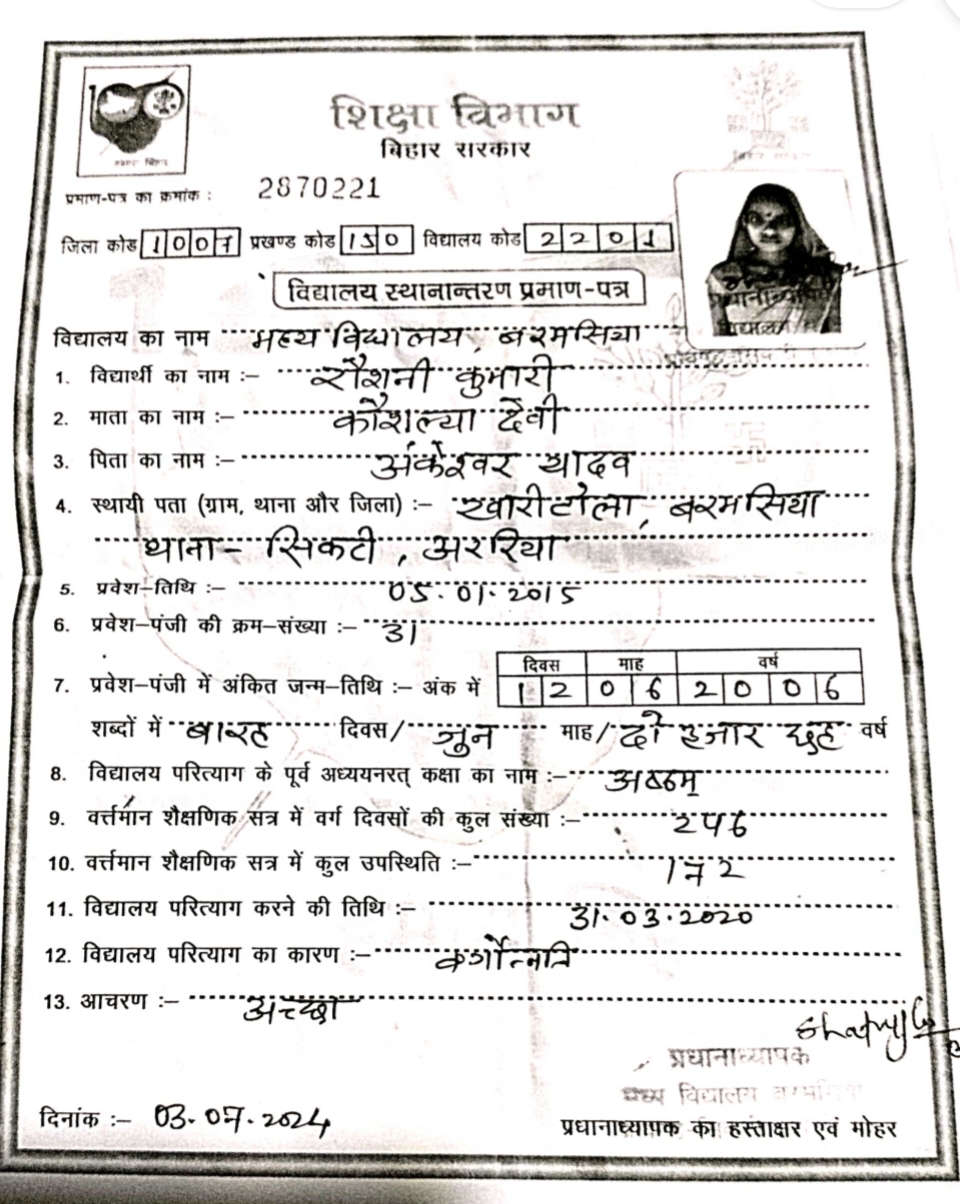 शिक्षा विभाग
बिहार सरकार
प्रमाण-पत्र का क्रमांक : 2870221
जिला कोड 1007 प्रखण्ड कोड 150 विद्यालय कोड 2201
विद्यालय स्थानान्तरण प्रमाण-पत्र
विद्यालय का नाम मध्य विद्यालय, बरमसिया
1. विद्यार्थी का नाम :– रौशनी कुमारी
2. माता का नाम :– कौशल्या देवी
3. पिता का नाम :– अंकेश्वर यादव
4. स्थायी पता (ग्राम, थाना और जिला) :– खारीटोला, बरमसिया
थाना – सिकटी, अररिया
5. प्रवेश–तिथि :– 05.01.2015
6. प्रवेश–पंजी की क्रम–संख्या :– 31
दिवस माह वर्ष
7. प्रवेश–पंजी में अंकित जन्म–तिथि :– अंक में 12 06 2006
शब्दों में बारह दिवस / जुन माह / दो हजार छह वर्ष
8. विद्यालय परित्याग के पूर्व अध्ययनरत् कक्षा का नाम :– अष्ठम्
9. वर्त्तमान शैक्षणिक सत्र में वर्ग दिवसों की कुल संख्या :– 246
10. वर्त्तमान शैक्षणिक सत्र में कुल उपस्थिति :– 172
11. विद्यालय परित्याग करने की तिथि :– 31.03.2020
12. विद्यालय परित्याग का कारण :– वर्गोन्नति
13. आचरण :– अच्छा
प्रधानाध्यापक
मध्य विद्यालय बरमसिया
दिनांक :– 03.07.2024
प्रधानाध्यापक का हस्ताक्षर एवं मोहर